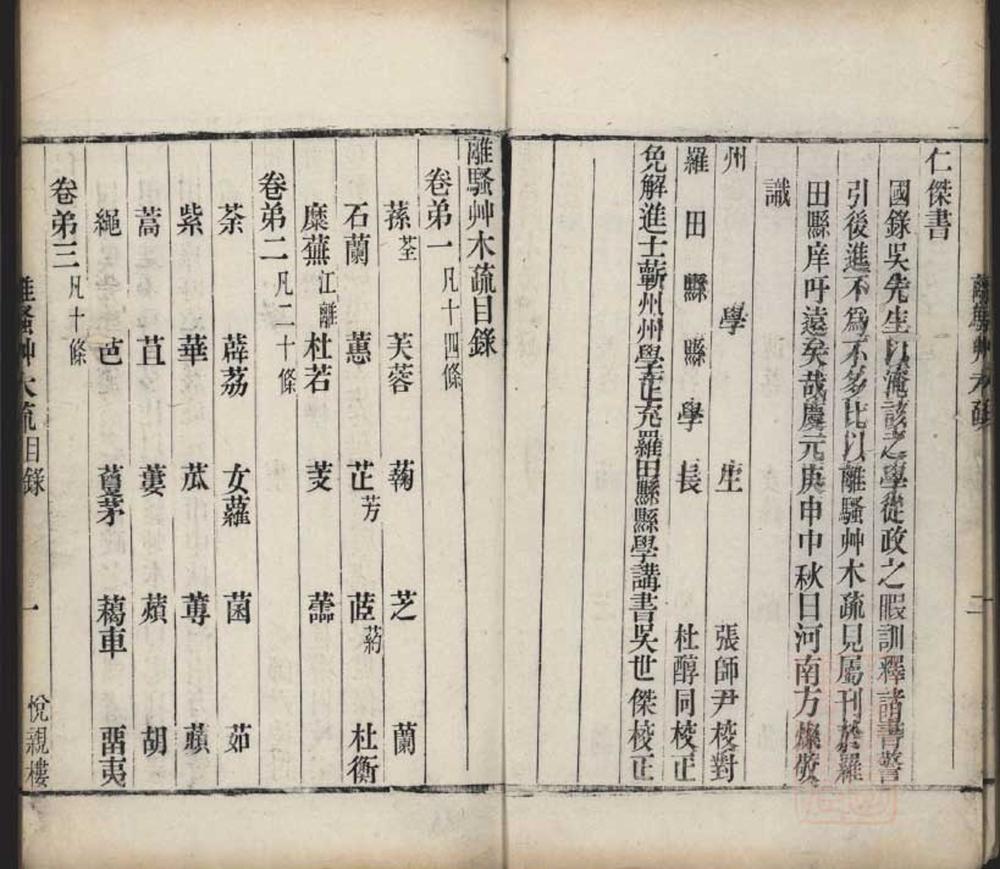 仁傑書
國錄吳先生以淹該之學從政之暇訓釋諸書警
引後進不為不多比以離騷艸木疏見屬刊於羅
田縣庠吁遠矣哉慶元庚申中秋日河南方燦敬
識
州學生張師尹校對
羅田縣縣學長杜醇同校正
免解進士蘄州州學正充羅田縣縣學講書吳世傑校正
二
離騷艸木疏目錄
卷弟一 凡十四條
蓀 荃 芙蓉 菊 芝 蘭
石蘭 蕙 芷 芳 茝 葯 杜衡
蘪蕪 江離 杜若 芰 蘦
卷弟二 凡二十條
荼 薜荔 女蘿 菌 茹
紫 華 苽 蓴 蘋
蒿 苴 蔞 薠 胡
繩 芭 藑茅 藒車 畱夷
卷弟三 凡十條
離騷艸木疏目錄 一 悅親樓